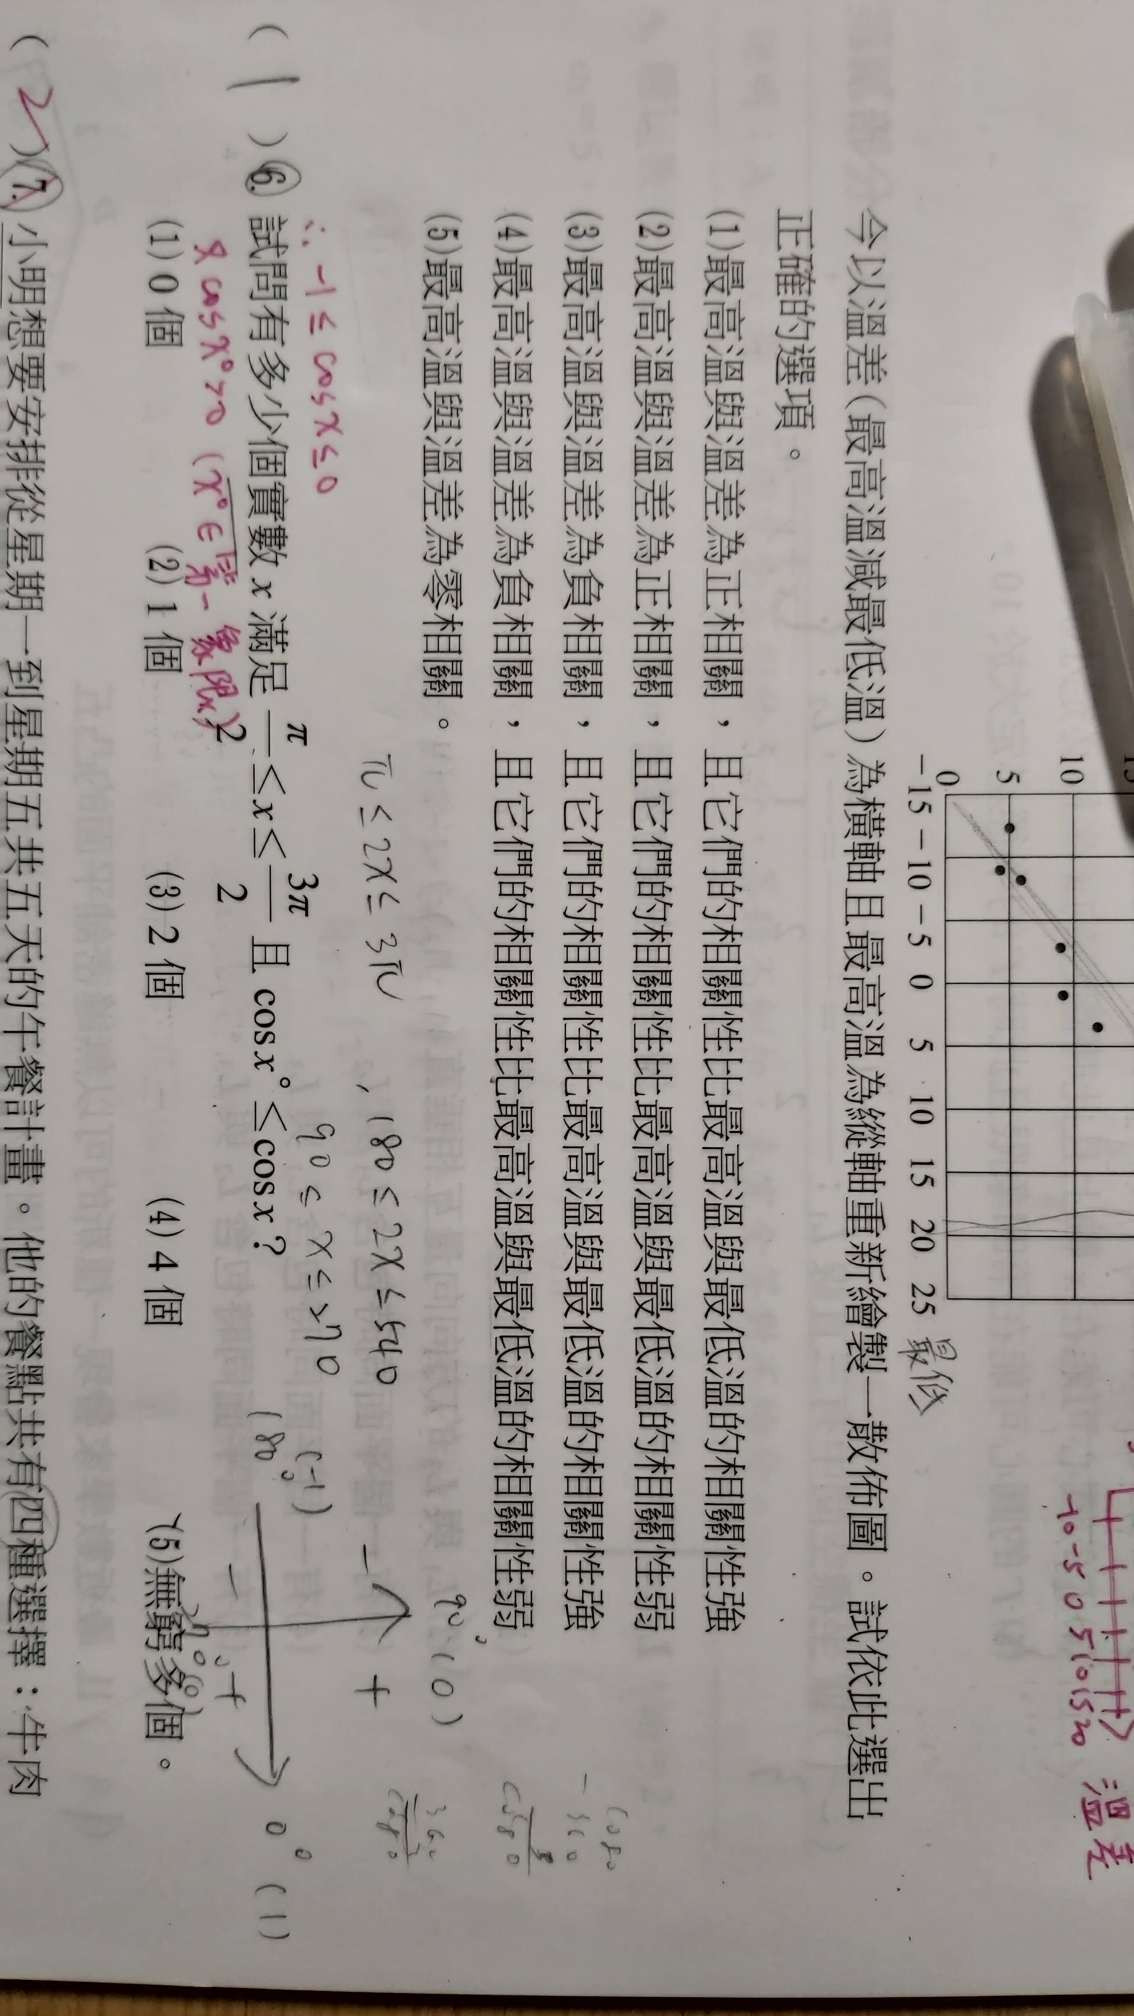 15
10
5
0
-15 -10 -5 0 5 10 15 20 25 最低
-10 -5 0 5 10 15 20 溫差
今以溫差(最高溫減最低溫)為橫軸且最高溫為縱軸重新繪製一散佈圖。試依此選出
正確的選項。
(1)最高溫與溫差為正相關,且它們的相關性比最高溫與最低溫的相關性強
(2)最高溫與溫差為正相關,且它們的相關性比最高溫與最低溫的相關性弱
(3)最高溫與溫差為負相關,且它們的相關性比最高溫與最低溫的相關性強
(4)最高溫與溫差為負相關,且它們的相關性比最高溫與最低溫的相關性弱
(5)最高溫與溫差為零相關。
π ≤ 2x ≤ 3π , 180 ≤ 2x ≤ 540
90 ≤ x ≤ 270
∴ -1 ≤ cos x ≤ 0
( 1 ) 6. 試問有多少個實數 x 滿足 π/2 ≤ x ≤ 3π/2 且 cos x° ≤ cos x?
又 cos x° > 0 (x° ∈ 第一象限)
(1) 0 個 (2) 1 個 (3) 2 個 (4) 4 個 (5)無窮多個。
90° (0)
- +
180° (-1)
0° (1)
- +
270° (0)
( 2 ) 7. 小明想要安排從星期一到星期五共五天的午餐計畫。他的餐點共有四種選擇:牛肉